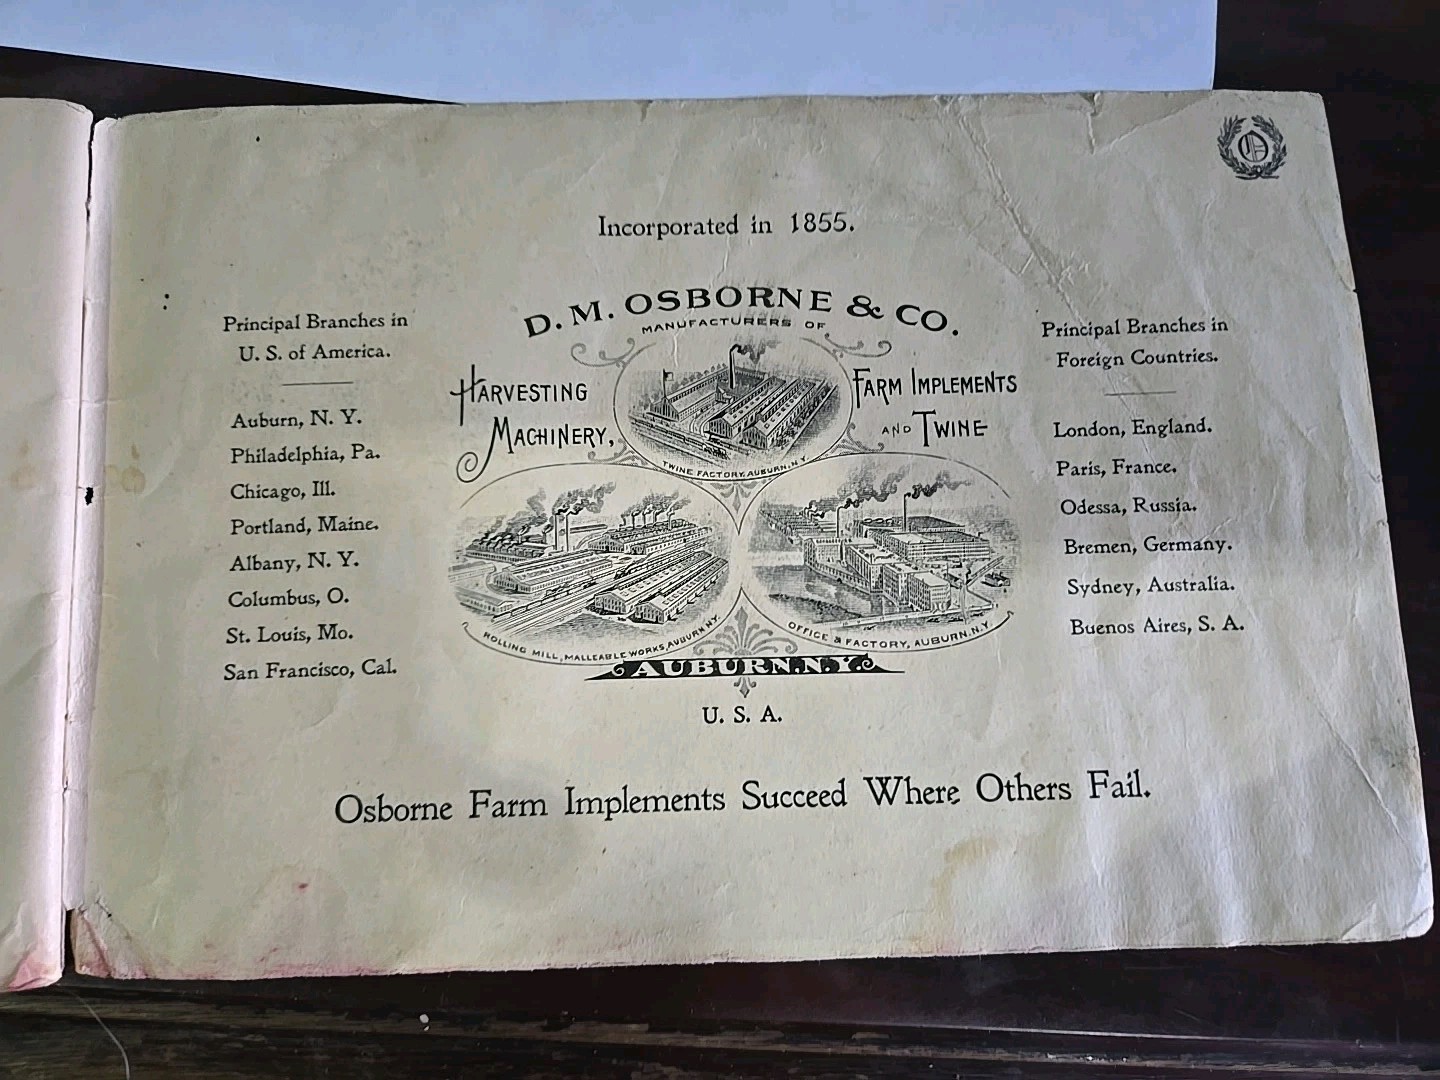 O
Incorporated in 1855.
D. M. OSBORNE & CO.
MANUFACTURERS OF
HARVESTING
MACHINERY,
FARM IMPLEMENTS
AND TWINE
TWINE FACTORY, AUBURN, N.Y.
ROLLING MILL, MALLEABLE WORKS, AUBURN, N.Y.
OFFICE & FACTORY, AUBURN, N.Y.
AUBURN, N.Y.
U. S. A.
Principal Branches in
U. S. of America.
Auburn, N. Y.
Philadelphia, Pa.
Chicago, Ill.
Portland, Maine.
Albany, N. Y.
Columbus, O.
St. Louis, Mo.
San Francisco, Cal.
Principal Branches in
Foreign Countries.
London, England.
Paris, France.
Odessa, Russia.
Bremen, Germany.
Sydney, Australia.
Buenos Aires, S. A.
Osborne Farm Implements Succeed Where Others Fail.